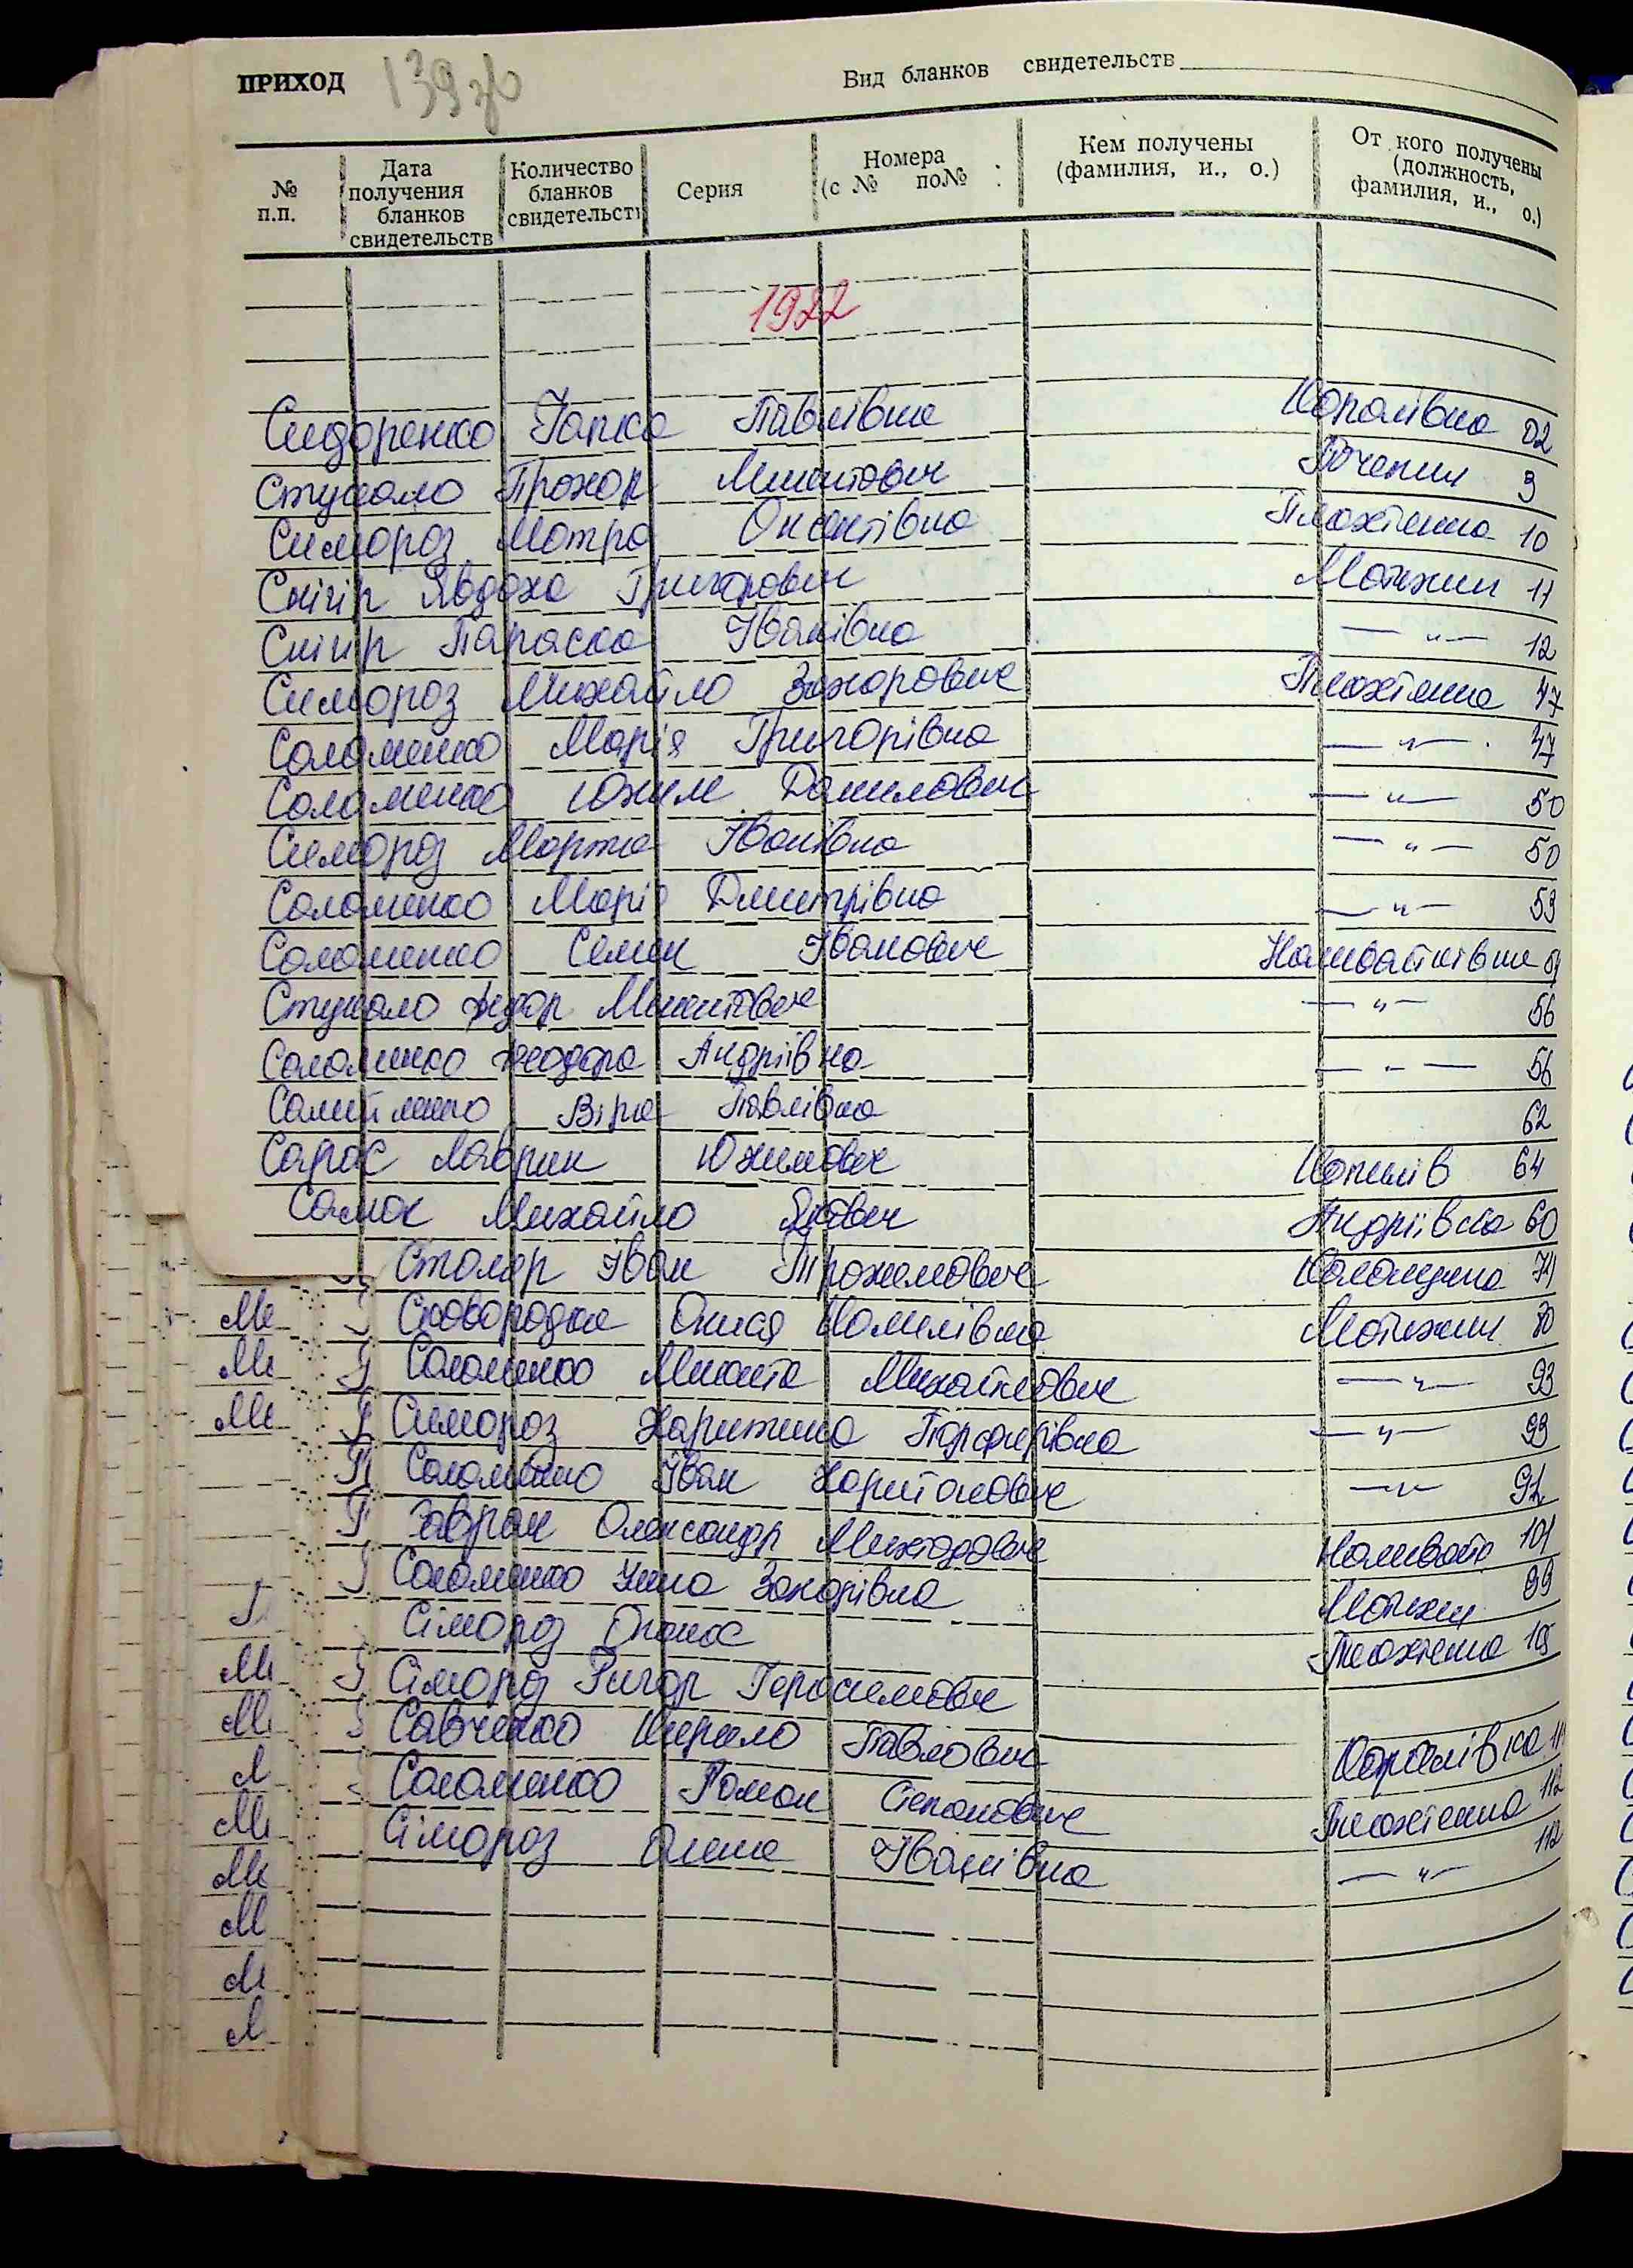 ПРИХОД 139 зв
Вид бланков свидетельств
№ п.п.
Дата получения бланков свидетельств
Количество бланков свидетельств
Серия
Номера (с № по№
Кем получены (фамилия, и., о.)
От кого получены (должность, фамилия, и., о.)
1922
Сидоренко Гапка Павлівна Копилівна 02
Стукало Прохор Микитович 3
Симороз Мотра Оксентівна Плахтянка 10
Снігір Явдоха Григорович Мотижин 11
Снігір Параска Іванівна — " — 12
Симороз Михайло Захарович Плахтянка 47
Соломенко Марія Григорівна — " — 47
Соломенко Юхим Данилович — " — 50
Симороз Марта Іванівна — " — 50
Соломенко Марія Дмитрівна — " — 53
Соломенко Семен Іванович Наливайківка 54
Стукало Федор Микитович — " — 56
Соломенко Теодора Андріївна — " — 56
Самійленко Віра Павлівна 62
Сарас Лаврин Юхимович Копилів 64
Самюк Михайло Якович Андріївка 60
Столяр Іван Трохимович Колонщина 74
Сковородка Оксая Камилівна Мотижин 80
Соломенко Микита Михайлович — " — 93
Симороз Харитина Парфирівна — " — 93
Соломенко Іван Харитонович — " — 92
Олександр Наливайк 101
Соломенко Ганна Захарівна Мотижин 99
Сіморoз Опанас Плахтянка 105
Сімороз Григор Герасимович
Савченко Кирило Павлович Копилівка 11
Соломенко Роман Степанович Плахтянка 112
Сімороз Олена Іванівна — " — 112